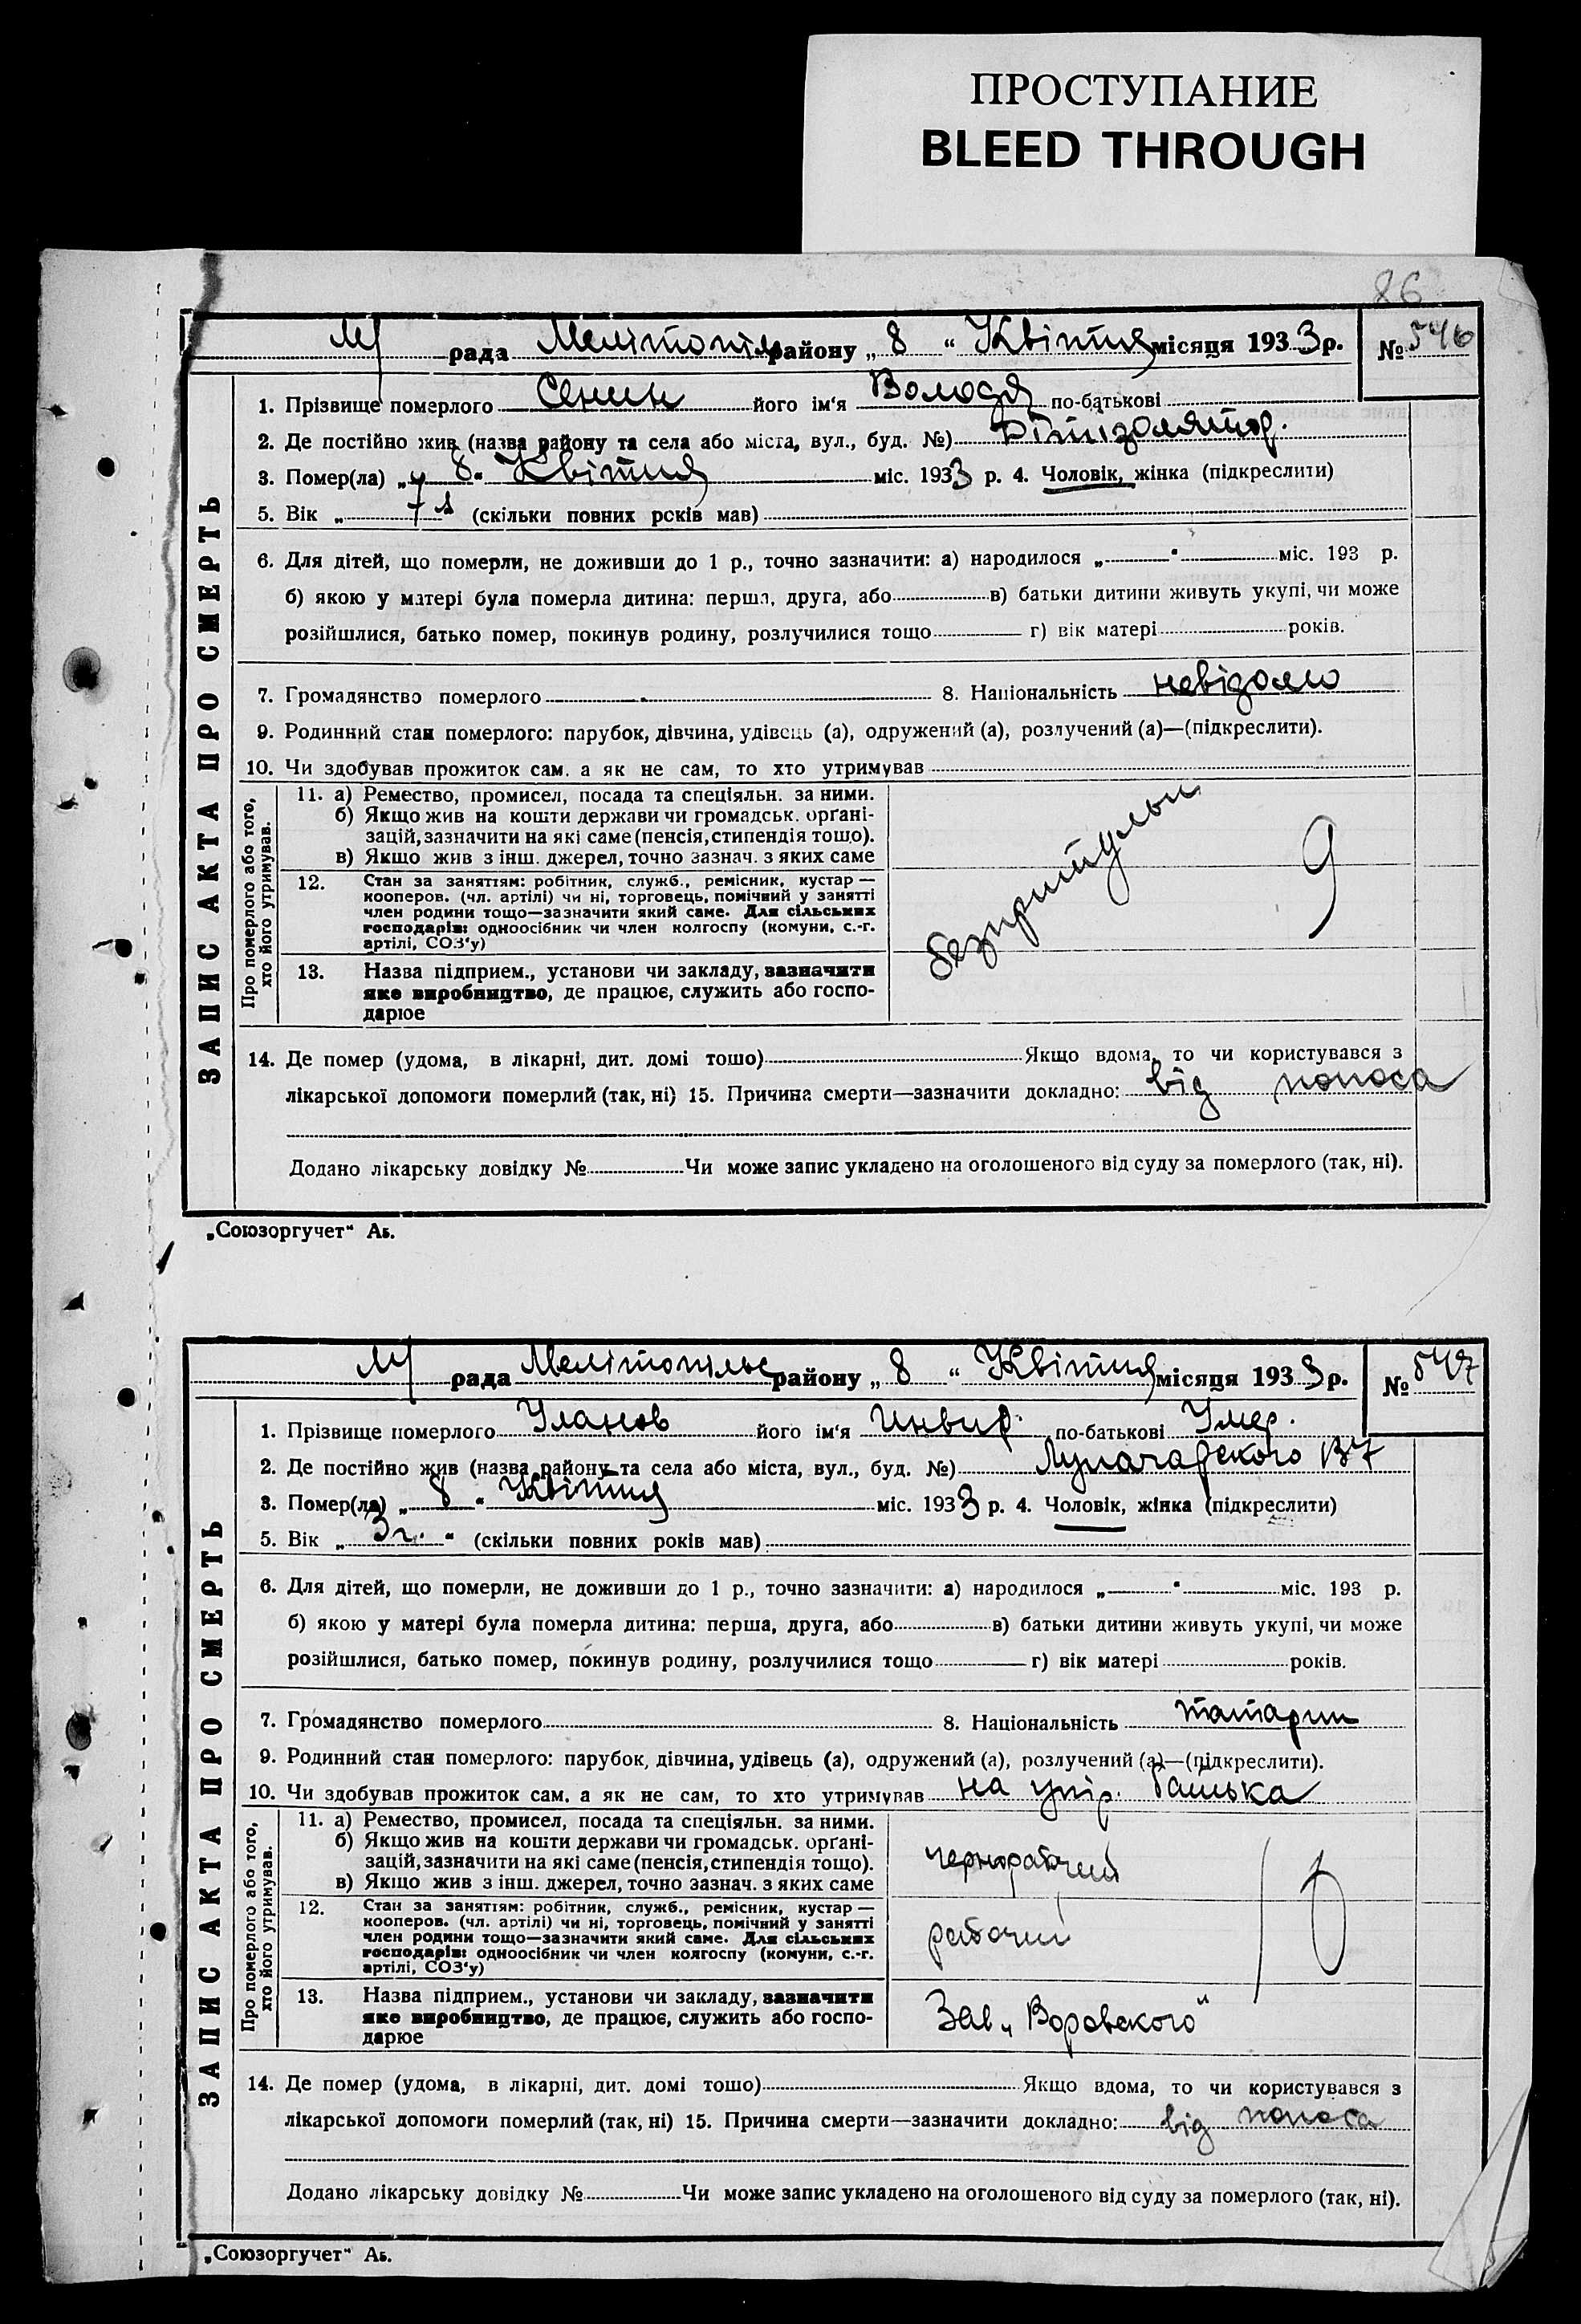 ПРОСТУПАНИЕ
BLEED THROUGH
86
М рада Мелітопіль району „ 8 “ Квітня місяця 193 3 р. № 546
ЗАПИС АКТА ПРО СМЕРТЬ
1. Прізвище померлого Сенин його ім‘я Володя по-батькові
2. Де постійно жив (назва району та села або міста, вул., буд. №) Дітізолятор.
3. Помер(ла) „ 8 “ Квітня міс. 193 3 р. 4. Чоловік, жінка (підкреслити)
5. Вік „ 7 л (скільки повних років мав)
6. Для дітей, що померли, не доживши до 1 р., точно зазначити: а) народилося „ “ міс. 193 р.
б) якою у матері була померла дитина: перша, друга, або в) батьки дитини живуть укупі, чи може
розійшлися, батько помер, покинув родину, розлучилися тощо г) вік матері років.
7. Громадянство померлого 8. Національність невідомо
9. Родинний стан померлого: парубок, дівчина, удівець (а), одружений (а), розлучений (а)—(підкреслити).
10. Чи здобував прожиток сам, а як не сам, то хто утримував
Про померлого або того, хто його утримував.
11. а) Ремество, промисел, посада та спеціяльн. за ними.
б) Якщо жив на кошти держави чи громадськ. орґані-
зацій, зазначити на які саме (пенсія, стипендія тощо).
в) Якщо жив з інш. джерел, точно зазнач. з яких саме
12. Стан за заняттям: робітник, служб., ремісник, кустар —
кооперов. (чл. артілі) чи ні, торговець, помічний у занятті
член родини тощо—зазначити який саме. Для сільських
господарів: одноосібник чи член колгоспу (комуни, с.-г.
артілі, СОЗ‘у)
13. Назва підприєм., установи чи закладу, зазначити
яке виробництво, де працює, служить або госпо-
дарює
безпритульн
9
14. Де помер (удома, в лікарні, дит. домі тощо) Якщо вдома, то чи користувався з
лікарської допомоги померлий (так, ні) 15. Причина смерти—зазначити докладно: від поноса
Додано лікарську довідку № Чи може запис укладено на оголошеного від суду за померлого (так, ні).
„Союзоргучет“ Аб.
М рада Мелітопільс району „ 8 “ Квітня місяця 193 3 р. № 547
ЗАПИС АКТА ПРО СМЕРТЬ
1. Прізвище померлого Уланов його ім‘я Инвир по-батькові Умер.
2. Де постійно жив (назва району та села або міста, вул., буд. №) Луначарского 137
3. Помер(ла) „ 8 “ Квітня міс. 193 3 р. 4. Чоловік, жінка (підкреслити)
5. Вік „ 3 г. “ (скільки повних років мав)
6. Для дітей, що померли, не доживши до 1 р., точно зазначити: а) народилося „ “ міс. 193 р.
б) якою у матері була померла дитина: перша, друга, або в) батьки дитини живуть укупі, чи може
розійшлися, батько помер, покинув родину, розлучилися тощо г) вік матері років.
7. Громадянство померлого 8. Національність татарин
9. Родинний стан померлого: парубок, дівчина, удівець (а), одружений (а), розлучений (а)—(підкреслити).
10. Чи здобував прожиток сам, а як не сам, то хто утримував на утр. батька
Про померлого або того, хто його утримував.
11. а) Ремество, промисел, посада та спеціяльн. за ними.
б) Якщо жив на кошти держави чи громадськ. орґані-
зацій, зазначити на які саме (пенсія, стипендія тощо).
в) Якщо жив з інш. джерел, точно зазнач. з яких саме
чернорабочий
12. Стан за заняттям: робітник, служб., ремісник, кустар —
кооперов. (чл. артілі) чи ні, торговець, помічний у занятті
член родини тощо—зазначити який саме. Для сільських
господарів: одноосібник чи член колгоспу (комуни, с.-г.
артілі, СОЗ‘у)
рабочий
13. Назва підприєм., установи чи закладу, зазначити
яке виробництво, де працює, служить або госпо-
дарює
Зав „Воровского“
14. Де помер (удома, в лікарні, дит. домі тощо) Якщо вдома, то чи користувався з
лікарської допомоги померлий (так, ні) 15. Причина смерти—зазначити докладно: від поноса
Додано лікарську довідку № Чи може запис укладено на оголошеного від суду за померлого (так, ні).
„Союзоргучет“ Аб.